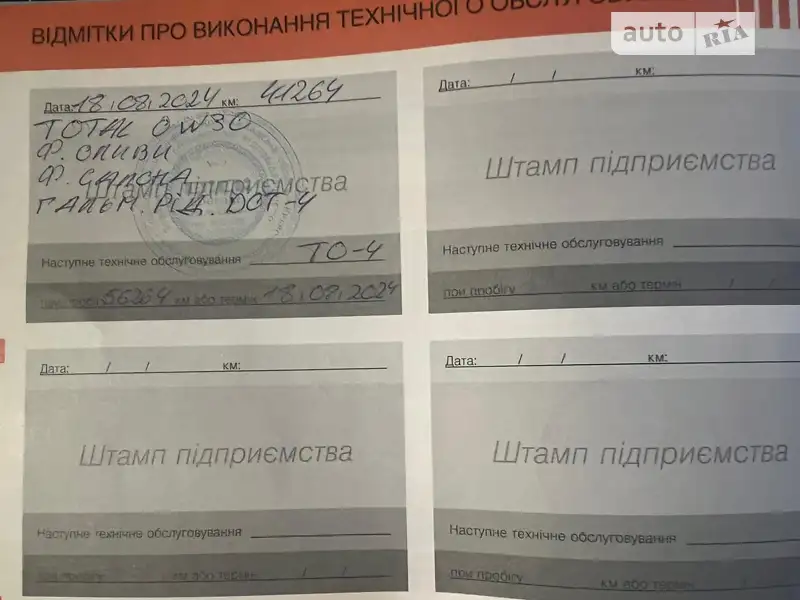 ВІДМІТКИ ПРО ВИКОНАННЯ ТЕХНІЧНОГО
auto RIA
Дата: 18.08.2024 км: 41264
TOTAL 0W30
Ф. ОЛИВИ
Ф. САЛОНА
ГАЛЬМ. РІД. DOT-4
Штамп підприємства
Наступне технічне обслуговування ТО-4
при пробігу 56264 км або термін 18.08.2024
Дата: / / км:
Штамп підприємства
Наступне технічне обслуговування
при пробігу км або термін / /
Дата: / / км:
Штамп підприємства
Наступне технічне обслуговування
при пробігу км або термін / /
Дата: / / км:
Штамп підприємства
Наступне технічне обслуговування
при пробігу км або термін / /